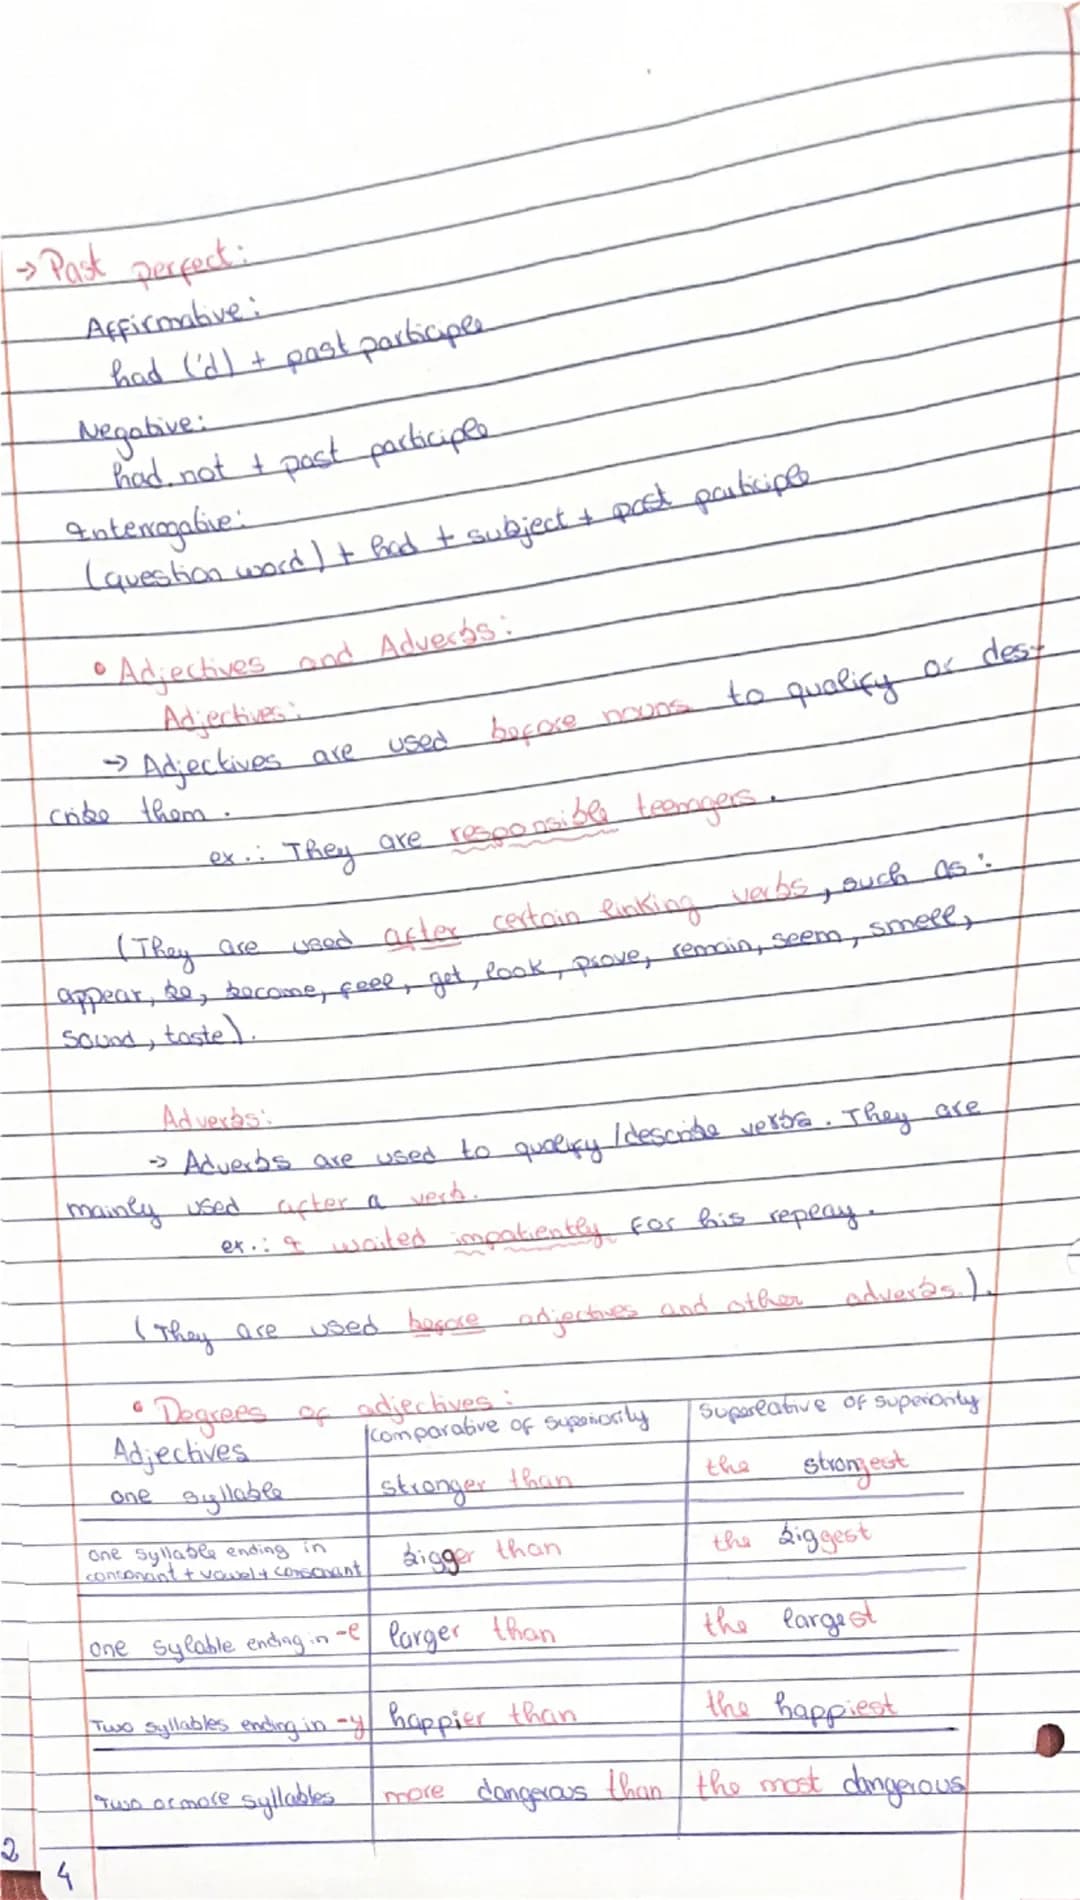 → Past perfect:
Affirmative:
had ('d) + past participle
Negative:
had not + past participle
Interrogative:
(question word) + had + subject + past participle
• Adjectives and Adverbs:
Adjectives:
→ Adjectives are used before nouns to qualify or des-
cribe them.
ex.: They are responsible teenagers.
(They are used after certain linking verbs, such as:
appear, be, become, feel, get, look, prove, remain, seem, smell,
sound, taste).
Adverbs:
→ Adverbs are used to qualify/describe verbs. They are
mainly used after a verb.
ex.: I waited impatiently for his repley.
(They are used before adjectives and other adverbs.).
• Degrees of adjectives:
Adjectives comparative of superiority superlative of superiority
one syllable stronger than the strongest
one syllable ending in
consonant + vowel + consonant bigger than the biggest
one sylable ending in -e larger than the largest
Two syllables ending in -y happier than the happiest
Two or more syllables more dangerous than the most dangerous
2
4